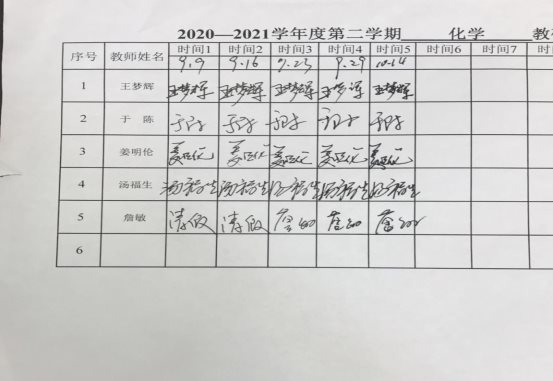 2020—2021学年度第二学期 化学 教
序号 教师姓名 时间1 时间2 时间3 时间4 时间5 时间6 时间7 时
9.9 9.16 9.23 9.29 10.14
1 王梦辉 王梦辉 王梦辉 王梦辉 王梦辉 王梦辉
2 于 陈 于陈 于陈 于陈 于陈 于陈
3 姜明伦 姜明伦 姜明伦 姜明伦 姜明伦 姜明伦
4 汤福生 汤福生 汤福生 汤福生 汤福生 汤福生
5 詹敏
6